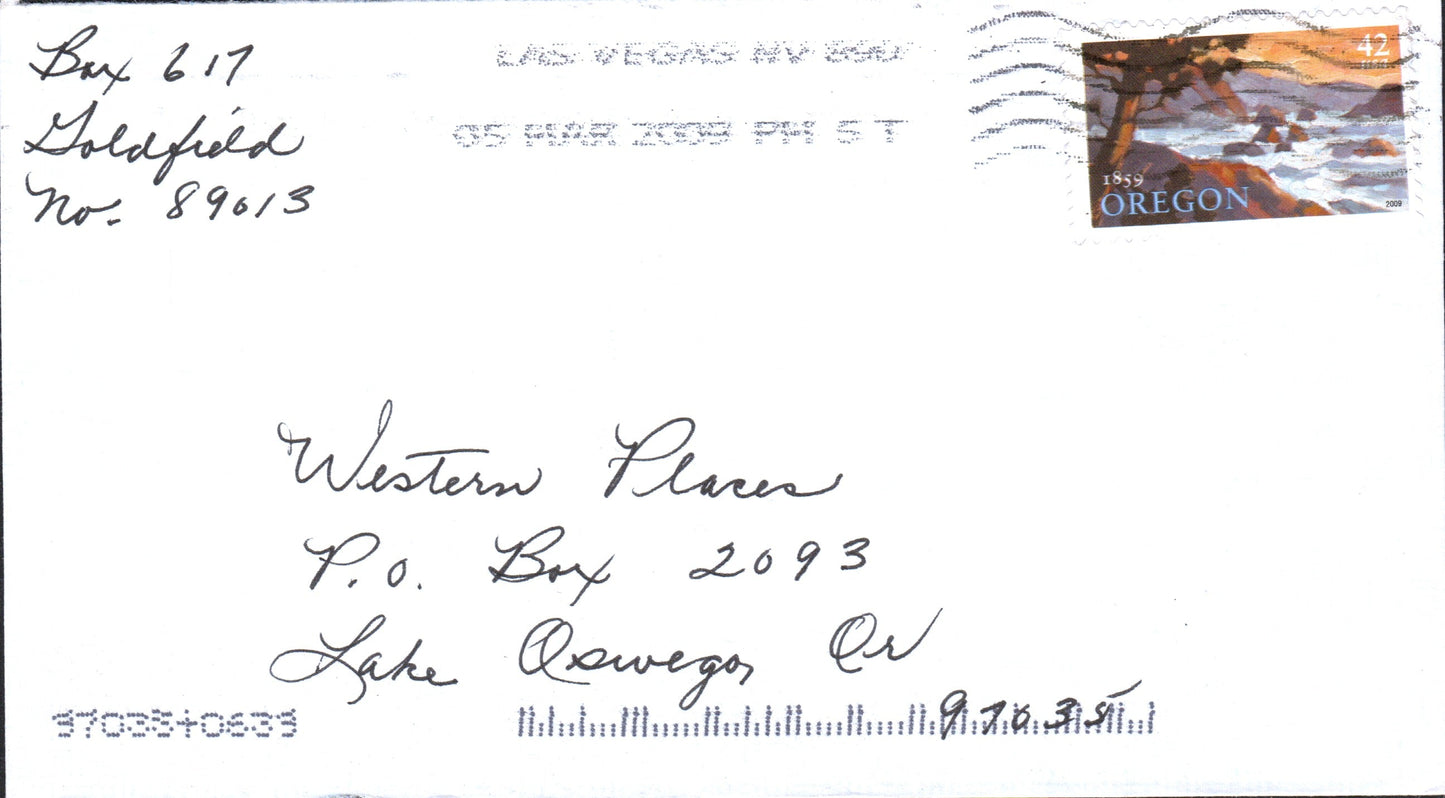 Box 617
Goldfield
Nv. 89013
LAS VEGAS NV 890
05 MAR 2009 PM 5 T
42
1859
OREGON
2009
Western Places
P.O. Box 2093
Lake Oswego, Or
97035
97035+0639